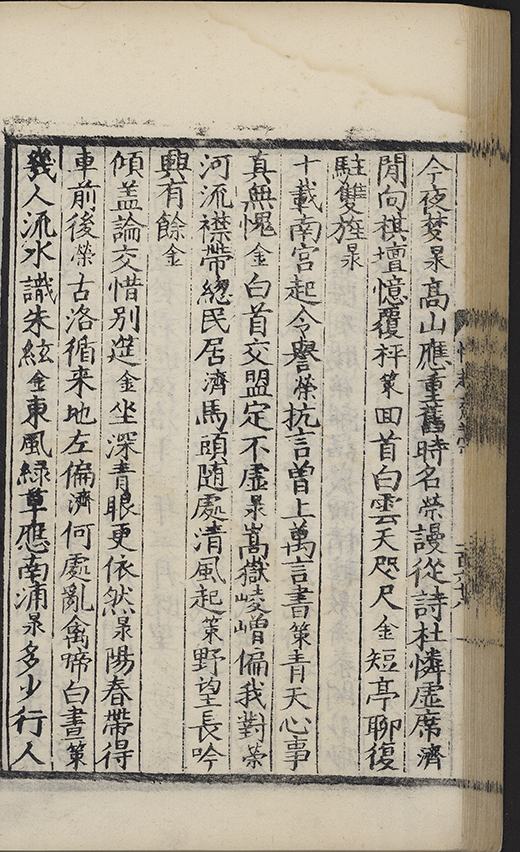 今夜夢杲高山應重舊時名榮謾從詩社憐虛席濟
閒向棋壇憶覆枰策回首白雲天咫尺金短亭聊復
駐雙旌杲
十載南宮起令譽榮抗言曾上萬言書策青天心事
真無愧金白首交盟定不虛杲嵩嶽崚嶒偏我對榮
河流襟帶緫民居濟馬頭隨處清風起策野望長吟
興有餘金
傾盖論交惜别筵金坐深青眼更依然杲陽春帶得
車前後榮古洛循来地左偏濟何處亂禽啼白晝策
幾人流水識朱絃金東風緑草應南浦杲多少行人